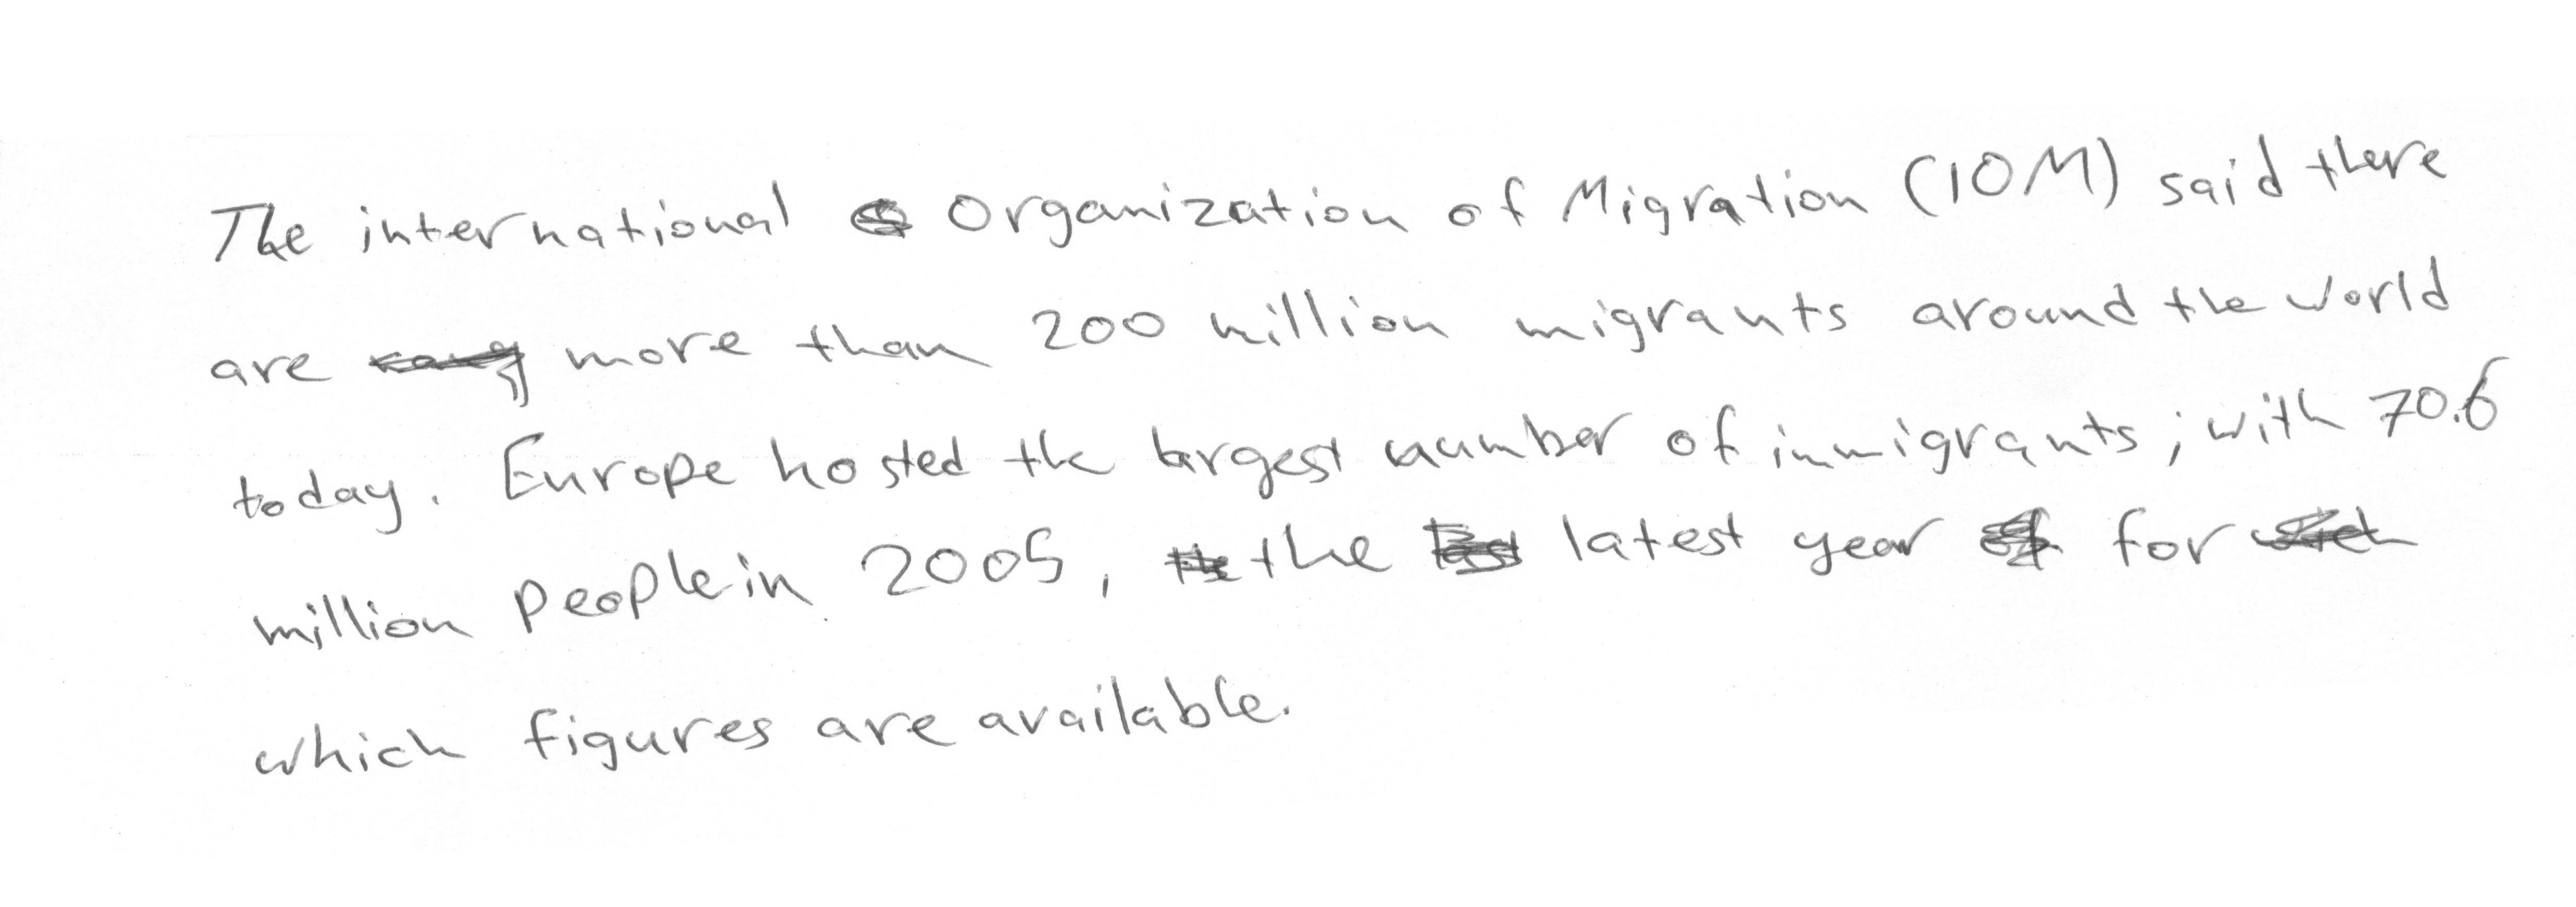 The international Organization of Migration (IOM) said there
are more than 200 million migrants around the world
today. Europe hosted the largest number of inmigrants, with 70.6
million people in 2005, the latest year for
which figures are available.